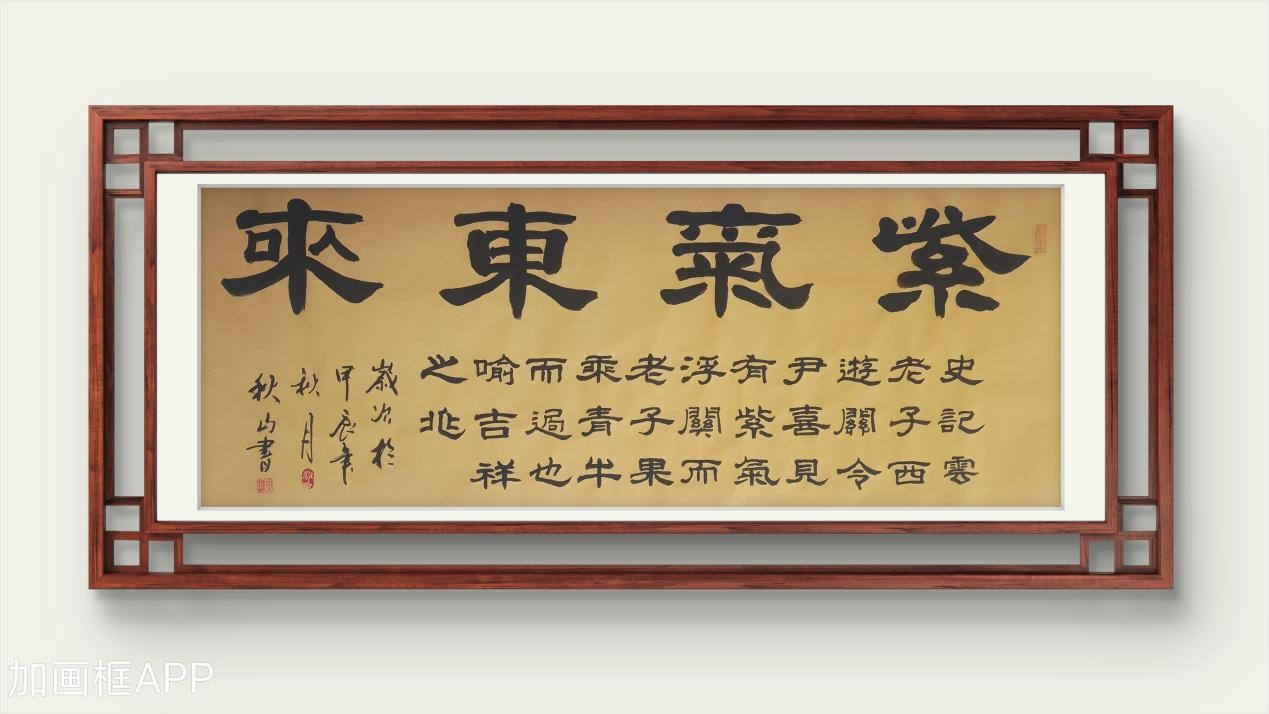 紫氣東來
史記雲
老子西
遊關令
尹喜見
有紫氣
浮關而
老子果
乘青牛
而過也
喻吉祥
之兆
歲次於
甲辰年
秋月
秋山書
加画框APP